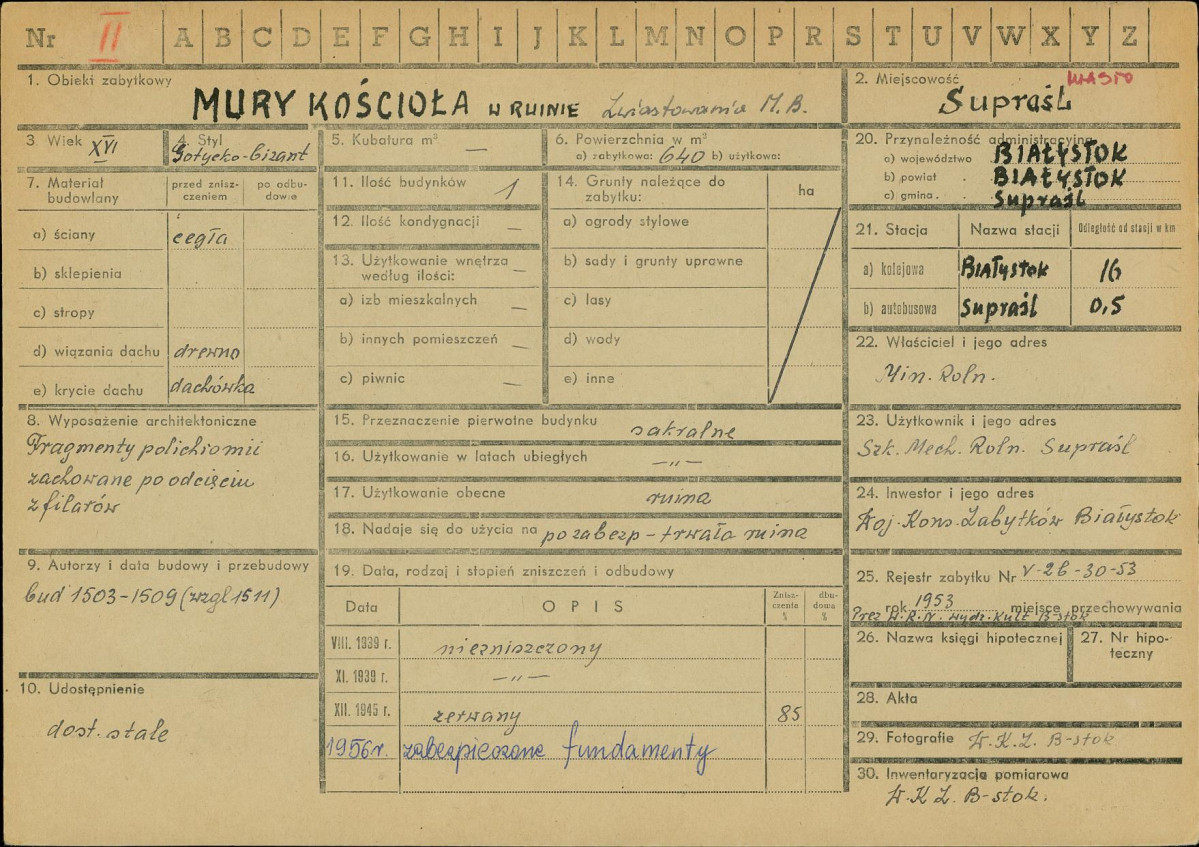 Nr II A B C D E F G H I J K L M N O P R S T U V W X Y Z
1. Obiekt zabytkowy
MURY KOŚCIOŁA W RUINIE Zwiastowania M.B.
2. Miejscowość MIASTO
Supraśl
3. Wiek XVI
4. Styl
Gotycko-bizant
5. Kubatura m³ —
6. Powierzchnia w m²
a) zabytkowa: 640 b) użytkowa:
7. Materiał budowlany
przed zniszczeniem
po odbudowie
a) ściany cegła
b) sklepienia
c) stropy
d) wiązania dachu drewno
e) krycie dachu dachówka
8. Wyposażenie architektoniczne
Fragmenty polichiomii
zachowane po odcięciu
z filarów
9. Autorzy i data budowy i przebudowy
bud 1503-1509 (wzgl 1511)
10. Udostępnienie
dost. stale
11. Ilość budynków 1
12. Ilość kondygnacji —
13. Użytkowanie wnętrza —
według ilości:
a) izb mieszkalnych —
b) innych pomieszczeń —
c) piwnic —
14. Grunty należące do
zabytku:
ha
a) ogrody stylowe
b) sady i grunty uprawne
c) lasy
d) wody
e) inne
15. Przeznaczenie pierwotne budynku sakralne
16. Użytkowanie w latach ubiegłych —"—
17. Użytkowanie obecne ruina
18. Nadaje się do użycia na po zabezp - trwała ruina
19. Data, rodzaj i stopień zniszczeń i odbudowy
Data
OPIS
Zniszczenia %
dbudowa %
VIII. 1939 r. niezniszczony
XI. 1939 r. —"—
XII. 1945 r. zerwany 85
1956 r. zabezpieczone fundamenty
20. Przynależność administracyjna
a) województwo BIAŁYSTOK
b) powiat . BIAŁYSTOK
c) gmina . Supraśl
21. Stacja
Nazwa stacji
Odległość od stacji w km
a) kolejowa BIAŁYSTOK 16
b) autobusowa Supraśl 0,5
22. Właściciel i jego adres
Min. Roln.
23. Użytkownik i jego adres
Szk. Mech. Roln. Supraśl
24. Inwestor i jego adres
Woj. Kons. Zabytków Białystok
25. Rejestr zabytku Nr V-26-30-53
rok 1953 miejsce przechowywania
Prez W.R.N. wydz. Kult B-stok
26. Nazwa księgi hipotecznej
27. Nr hipoteczny
28. Akta
29. Fotografie W.K.Z. B-stok
30. Inwentaryzacja pomiarowa
W.K.Z. B-stok.